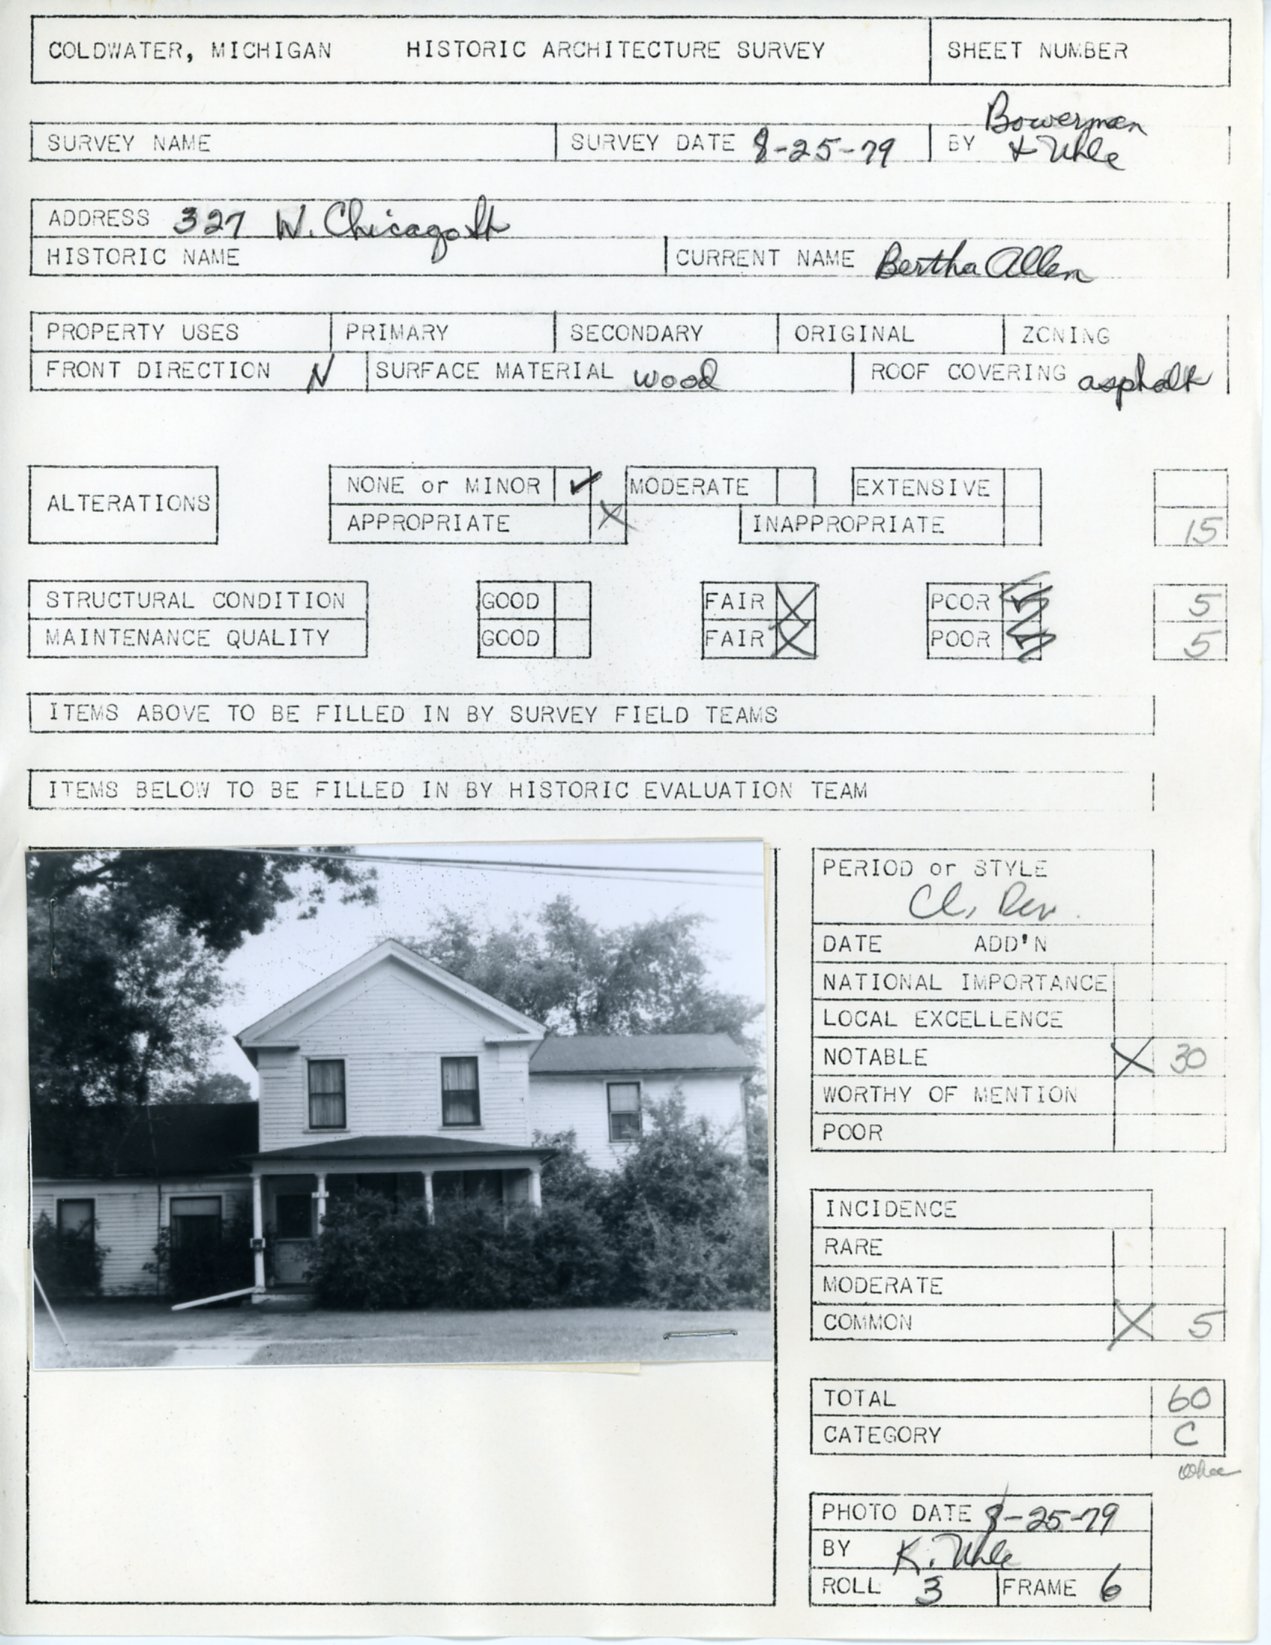 COLDWATER, MICHIGAN HISTORIC ARCHITECTURE SURVEY SHEET NUMBER
SURVEY NAME SURVEY DATE 8-25-79 BY Bowerman
& Uhle
ADDRESS 327 W. Chicago St
HISTORIC NAME CURRENT NAME Bertha Allen
PROPERTY USES PRIMARY SECONDARY ORIGINAL ZONING
FRONT DIRECTION N SURFACE MATERIAL wood ROOF COVERING asphalt
ALTERATIONS
NONE or MINOR ✓ MODERATE EXTENSIVE
APPROPRIATE X INAPPROPRIATE 15
STRUCTURAL CONDITION GOOD FAIR X POOR 5
MAINTENANCE QUALITY GOOD FAIR X POOR 5
ITEMS ABOVE TO BE FILLED IN BY SURVEY FIELD TEAMS
ITEMS BELOW TO BE FILLED IN BY HISTORIC EVALUATION TEAM
PERIOD or STYLE
Cl. Rev.
DATE ADD'N
NATIONAL IMPORTANCE
LOCAL EXCELLENCE
NOTABLE X 30
WORTHY OF MENTION
POOR
INCIDENCE
RARE
MODERATE
COMMON X 5
TOTAL 60
CATEGORY C
PHOTO DATE 8-25-79
BY K. Uhle
ROLL 3 FRAME 6